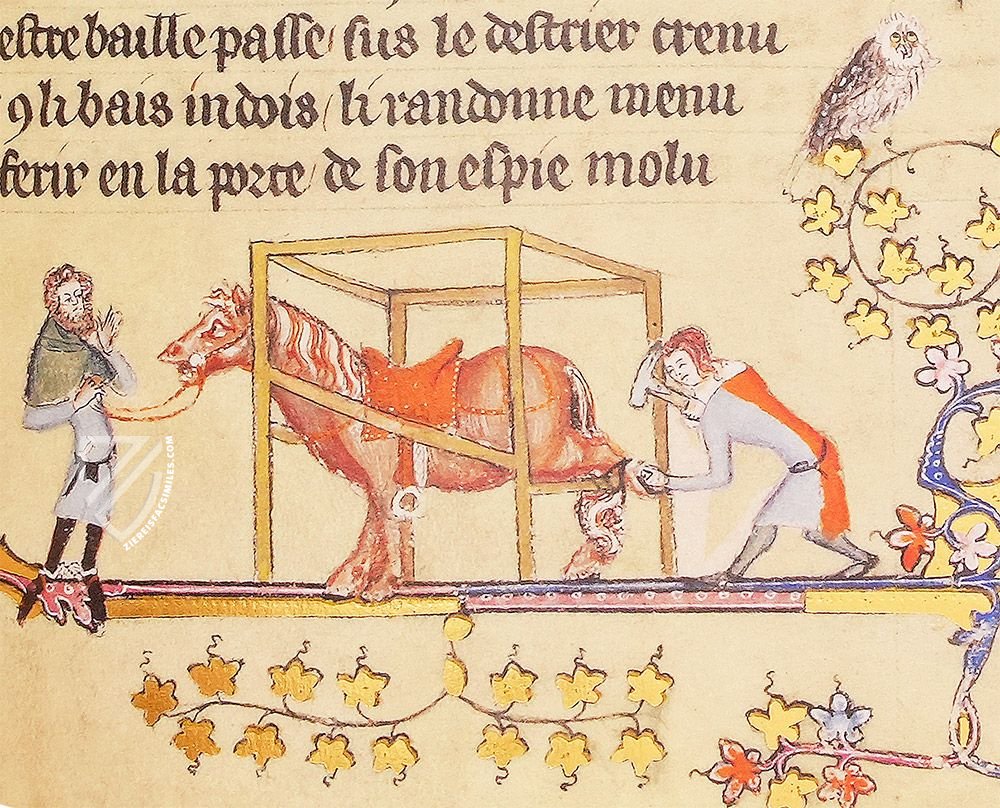 estre baille passe / sus le destrier crenu
9 li bais indois / li randonne menu
ferir en la porte / de son espie molu
ZIEREISFACSIMILES.COM